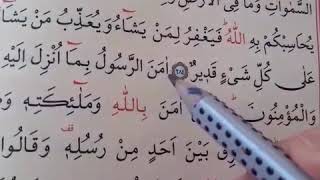 السَّمٰوَاتِ وَمَا فِي الْاَرْضِ
يُحَاسِبْكُمْ بِهِ اللّٰهُ فَيَغْفِرُ لِمَنْ يَشَٓاءُ وَيُعَذِّبُ مَنْ يَشَٓاءُ
عَلٰى كُلِّ شَيْءٍ قَد۪يرٌ ٢٨٤ اٰمَنَ الرَّسُولُ بِمَٓا اُنْزِلَ اِلَيْهِ
وَالْمُؤْمِنُونَ اٰمَنَ بِاللّٰهِ وَمَلٰٓئِكَتِه۪
بَيْنَ اَحَدٍ مِنْ رُسُلِه۪ وَقَالُوا